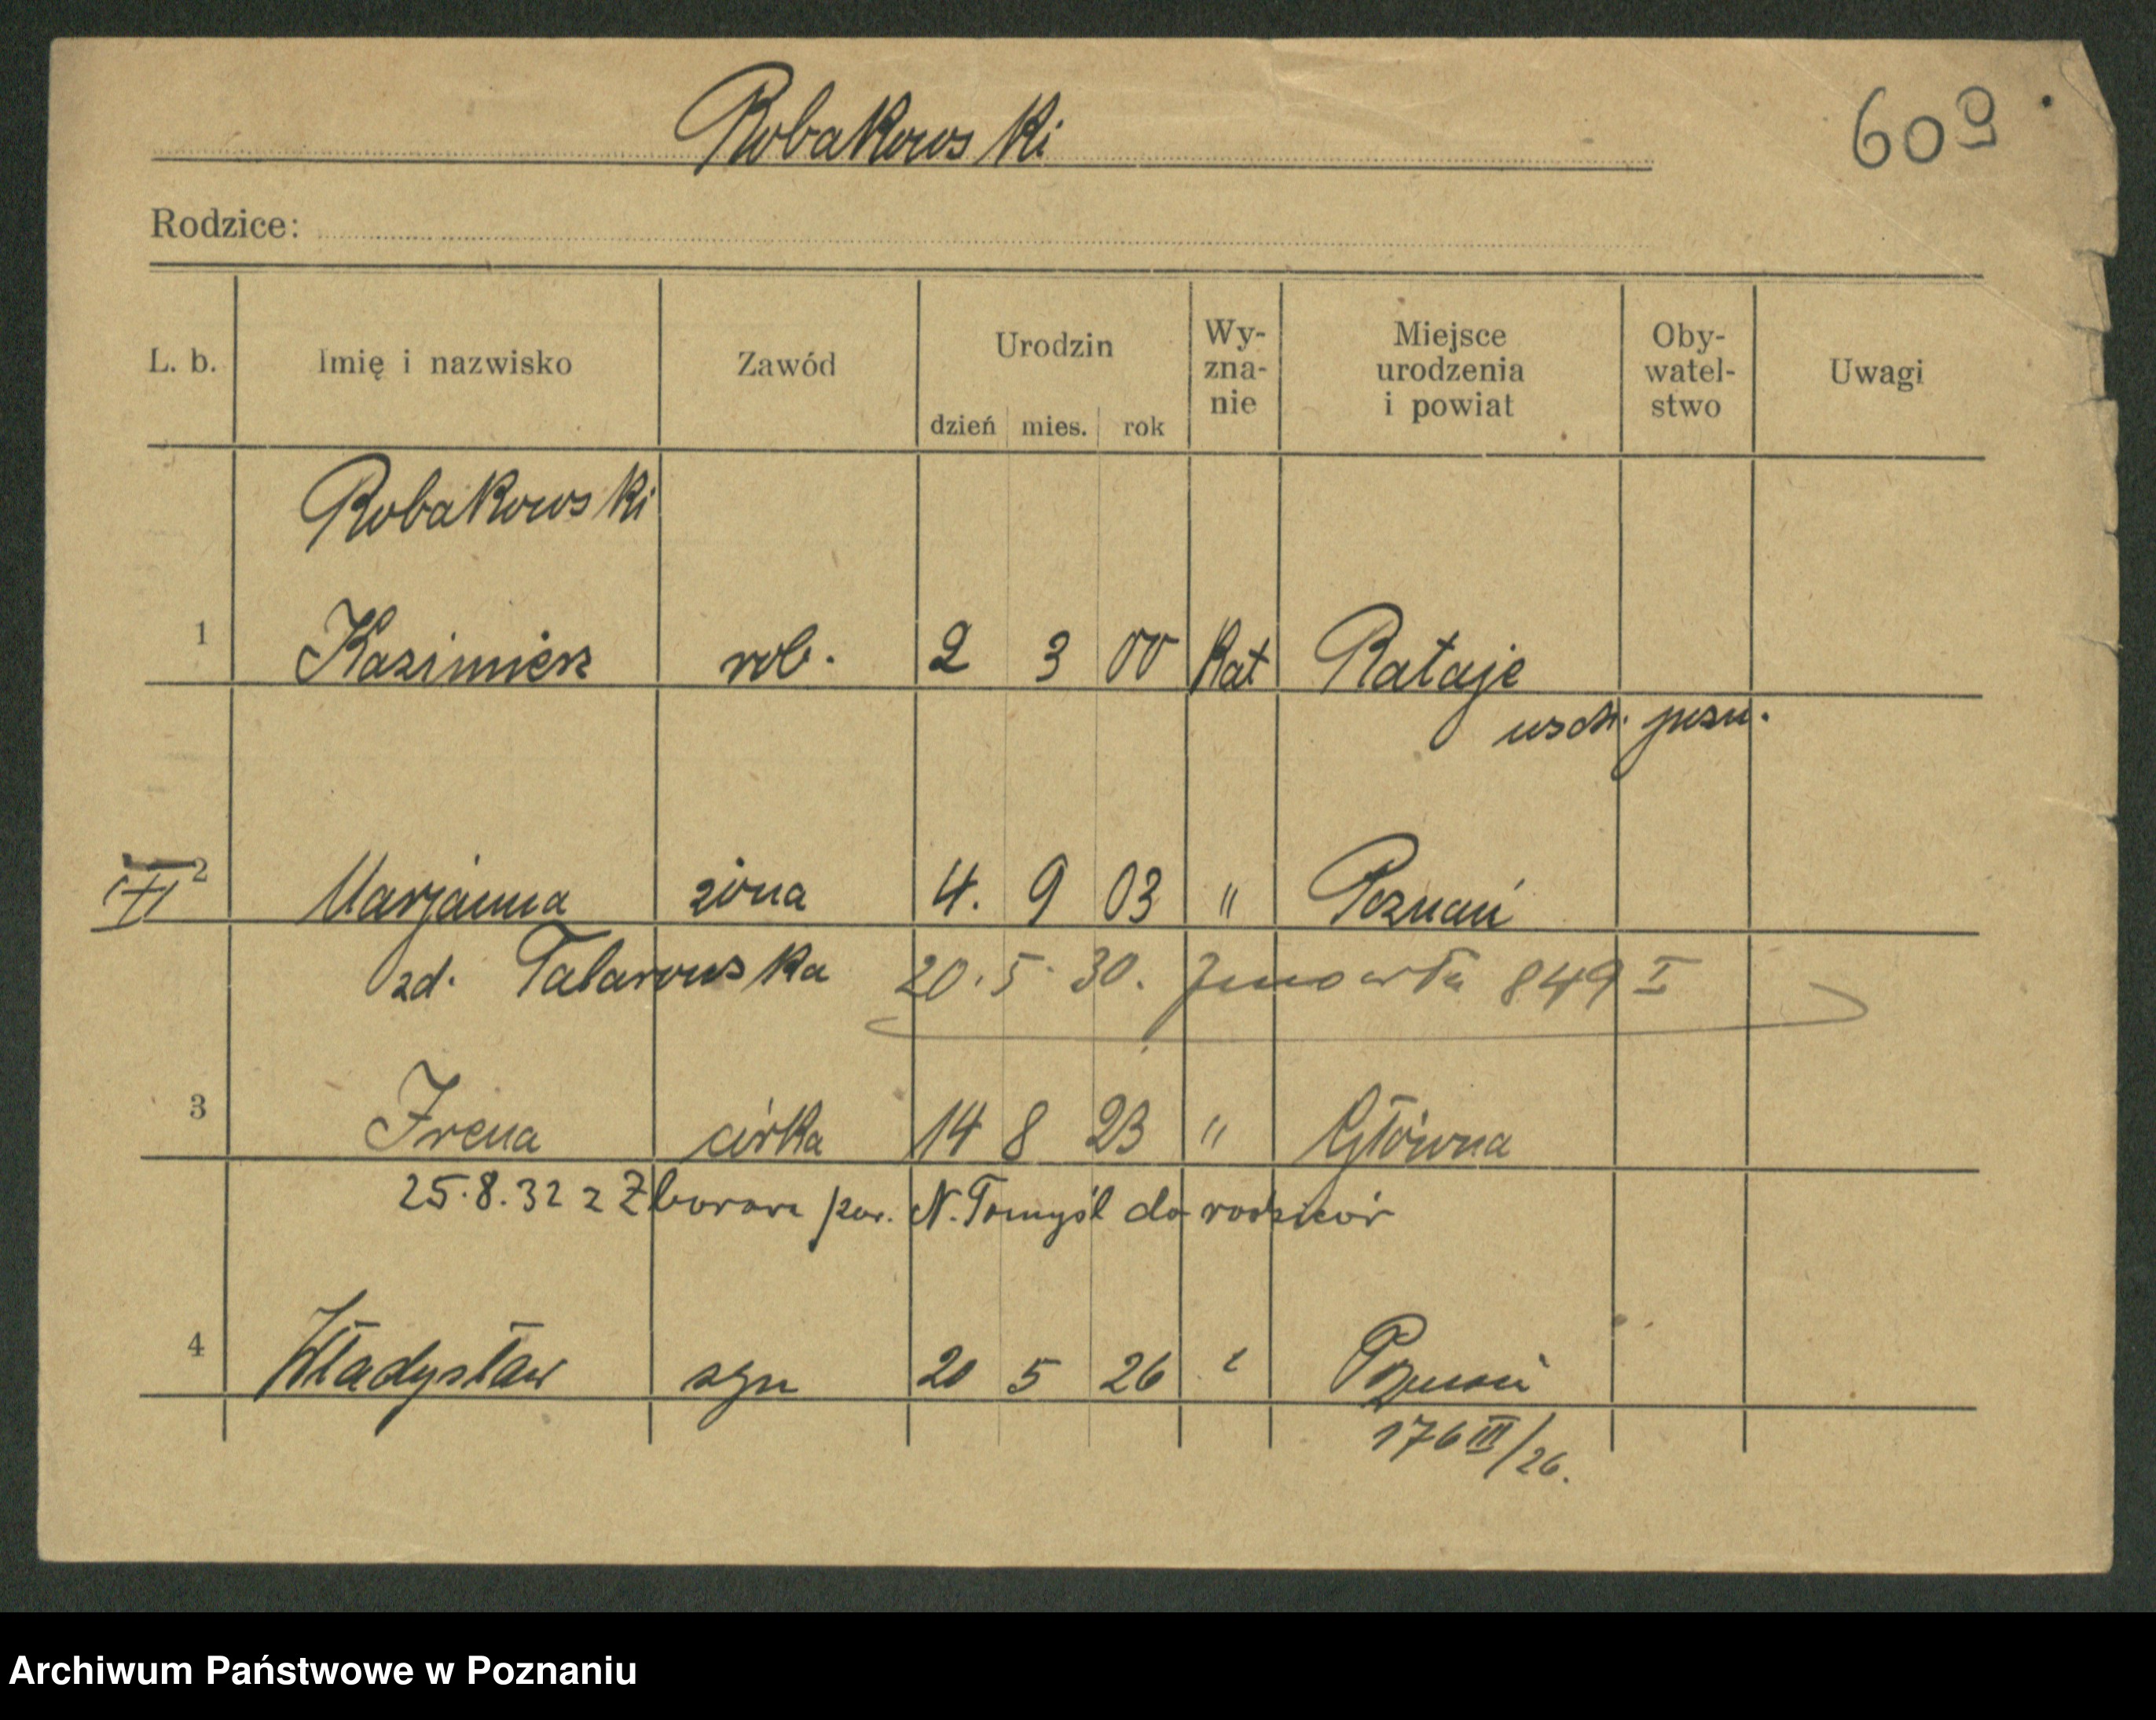 Robakowski
609
Rodzice:
L. b. Imię i nazwisko Zawód Urodzin dzień mies. rok Wy-zna-nie Miejsce urodzenia i powiat Oby-watel-stwo Uwagi
Robakowski
1 Kazimierz rob. 2 3 00 Kat Rataje
wsch. pozn.
2 Marjanna żona 4. 9 03 " Poznań
zd. Talarowska 20.5.30. zmarła 849 I
3 Irena córka 14 8 23 " Główna
25.8.32 z Zborowa pow. N. Tomyśl do rodziców
4 Władysław syn 20 5 26 " Poznań
176 III/26.
Archiwum Państwowe w Poznaniu